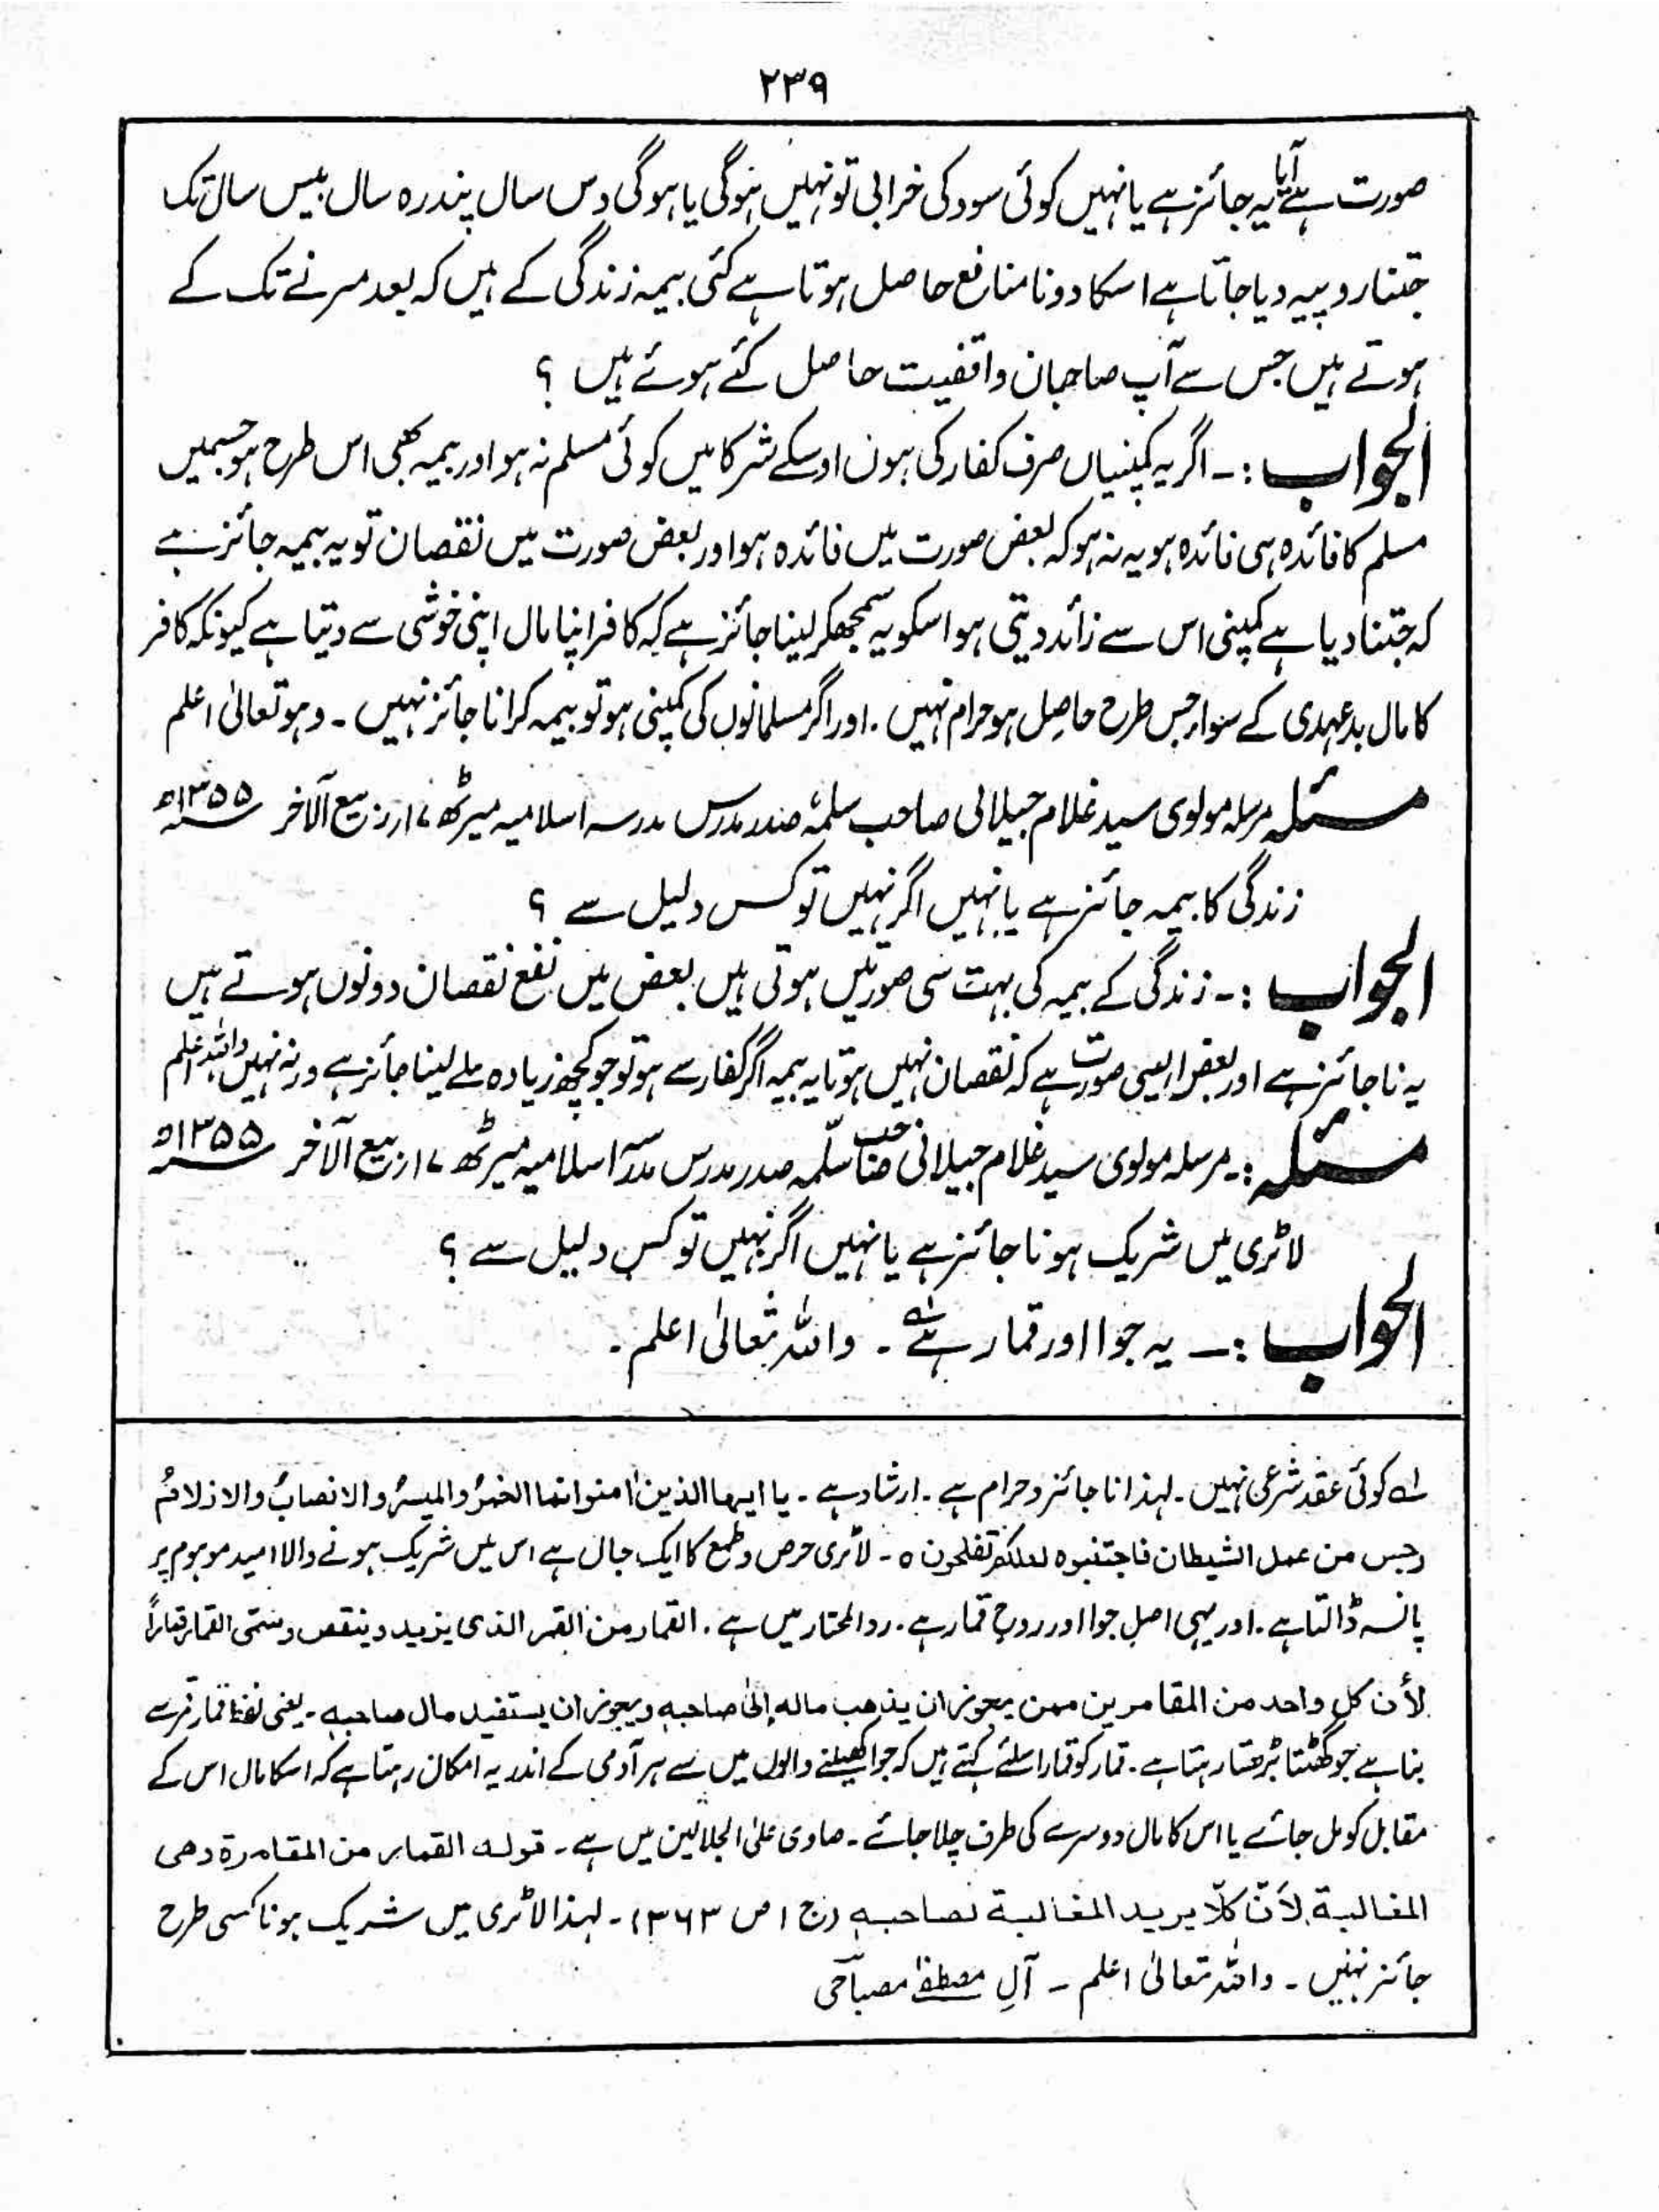 ۲۳۹
صورت ہے آیا یہ جائز ہے یا نہیں کوئی سود کی خرابی تو نہیں ہوگی یا ہوگی دس سال پندرہ سال بیس سال تک
جتنا روپیہ دیا جاتا ہے اسکا دونا منافع حاصل ہوتا ہے کئی بیمہ زندگی کے ہیں کہ بعد مرنے تک کے
ہوتے ہیں جس سے آپ صاحبان واقفیت حاصل کئے ہوئے ہیں ؟
الجواب :۔ اگر یہ کمپنیاں صرف کفار کی ہوں اوسکے شرکا میں کوئی مسلم نہ ہو اور بیمہ بھی اس طرح ہو جسمیں
مسلم کا فائدہ ہی فائدہ ہو یہ نہ ہو کہ بعض صورت میں فائدہ ہو اور بعض صورت میں نقصان تو یہ بیمہ جائز ہے
کہ جتنا دیا ہے کمپنی اس سے زائد دیتی ہو اسکو یہ سمجھکر لینا جائز ہے کہ کافر اپنا مال اپنی خوشی سے دیتا ہے کیونکہ کافر
کا مال بدعہدی کے سوا جس طرح حاصل ہو حرام نہیں ۔ اور اگر مسلمانوں کی کمپنی ہو تو بیمہ کرانا جائز نہیں ۔ وہو تعالیٰ اعلم
مسئلہ مرسلہ مولوی سید غلام جیلانی صاحب سلمہ صدر مدرس مدرسہ اسلامیہ میرٹھ ۱۷ ربیع الآخر ۱۳۵۵ھ
زندگی کا بیمہ جائز ہے یا نہیں اگر نہیں تو کس دلیل سے ؟
الجواب :۔ زندگی کے بیمہ کی بہت سی صورتیں ہوتی ہیں بعض میں نفع نقصان دونوں ہوتے ہیں
یہ ناجائز ہے اور بعض ایسی صورت ہے کہ نقصان نہیں ہوتا یہ بیمہ اگر کفار سے ہو تو جو کچھ زیادہ ملے لینا جائز ہے ورنہ نہیں واللہ اعلم
مسئلہ :۔ مرسلہ مولوی سید غلام جیلانی صاحب سلمہ صدر مدرس مدرسہ اسلامیہ میرٹھ ۱۷ ربیع الآخر ۱۳۵۵ھ
لاٹری میں شریک ہونا جائز ہے یا نہیں اگر نہیں تو کس دلیل سے ؟
الجواب :۔ یہ جوا اور قمار ہے ۱ھ ۔ واللہ تعالیٰ اعلم ۔
۱ھ کوئی عقد شرعی نہیں ۔ لہذا ناجائز و حرام ہے ۔ ارشاد ہے ۔ یا ایہا الذین اٰمنوا انما الخمرُ والمیسرُ والانصابُ والازلامُ
رجس من عمل الشیطان فاجتنبوہ لعلکم تفلحون ہ ۔ لاٹری حرص و طمع کا ایک جال ہے اس میں شریک ہونے والا امید موہوم پر
پانسہ ڈالتا ہے ۔ اور یہی اصل جوا اور روح قمار ہے ۔ رد المحتار میں ہے ۔ القمار من القمر الذی یزید و ینقص وسمی القمار قماراً
لأن کل واحد من المقامرین ممن یجوز ان یذہب مالہ إلیٰ صاحبہ ویجوز ان یستفید مال صاحبہ ۔ یعنی لفظ قمار قمر سے
بنا ہے جو گھٹتا بڑھتا رہتا ہے ۔ قمار کو قمار اسلئے کہتے ہیں کہ جوا کھیلنے والوں میں سے ہر آدمی کے اندر یہ امکان رہتا ہے کہ اسکا مال اس کے
مقابل کو مل جائے یا اس کا مال دوسرے کی طرف چلا جائے ۔ صاوی علی الجلالین میں ہے ۔ قولہ القمار من المقامرۃ وھی
المغالبۃ لأنّ کلّا یرید المغالبۃ لصاحبہ (ج ۱ ص ۳۶۳) ۔ لہذا لاٹری میں شریک ہونا کسی طرح
جائز نہیں ۔ واللہ تعالیٰ اعلم ۔ آلِ مصطفےٰ مصباحی